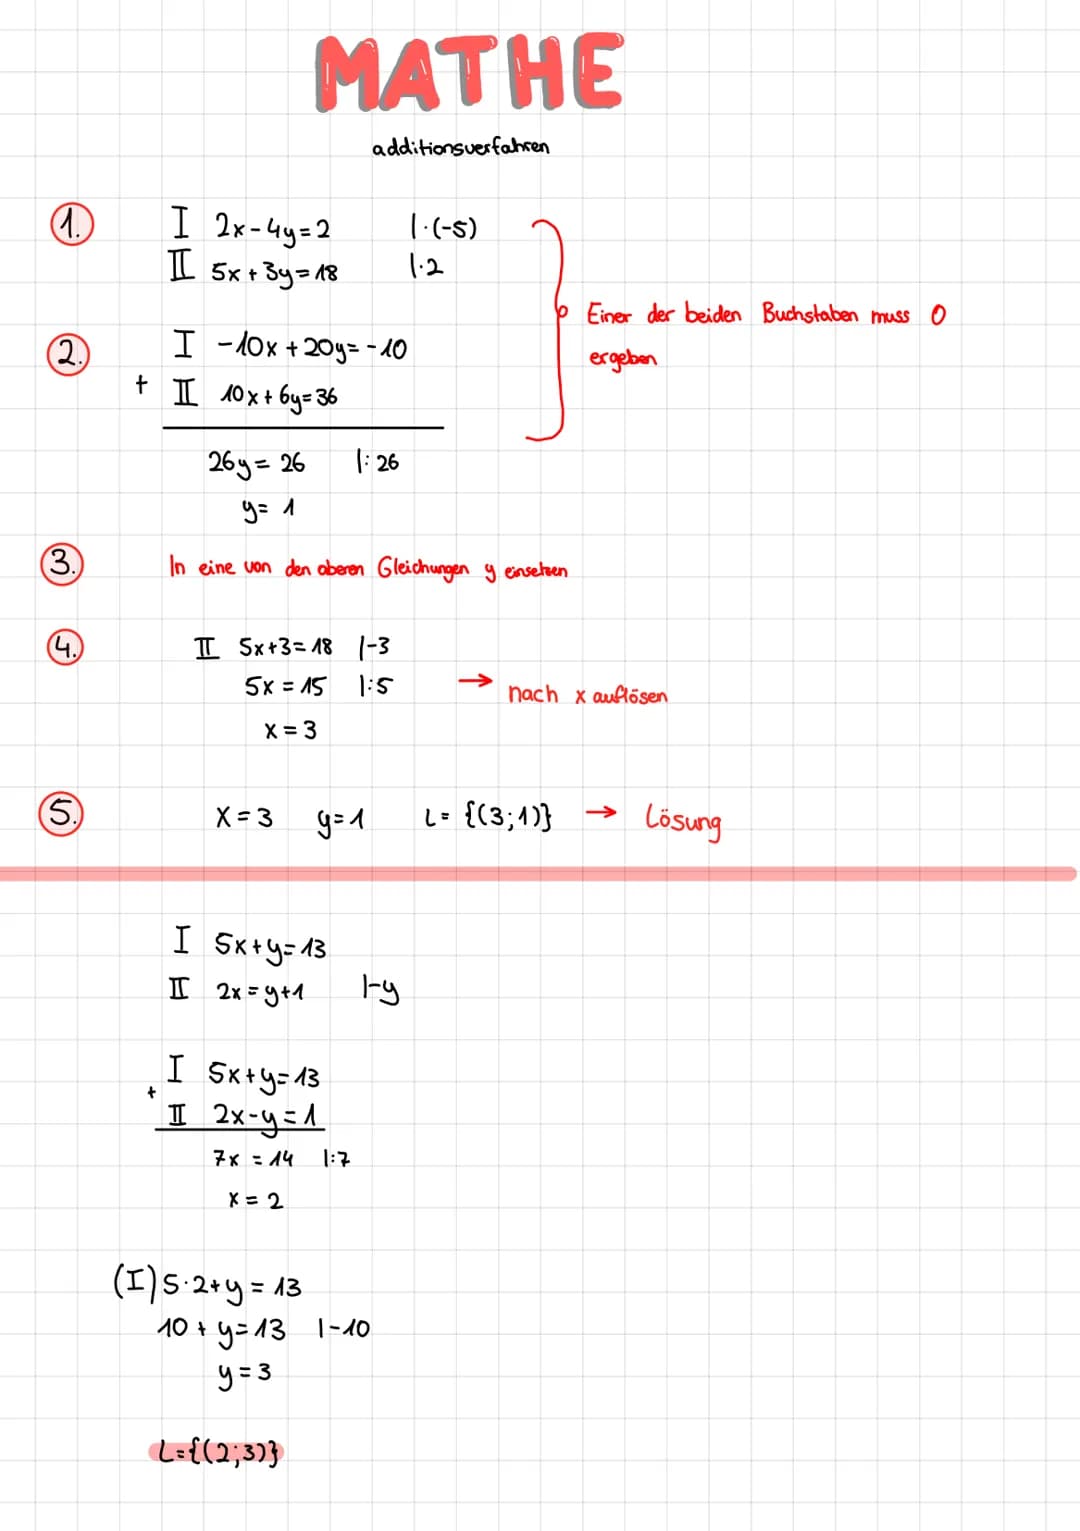 MATHE
additionsverfahren
1. I 2x-4y=2 |·(-5)
II 5x+3y=18 |·2
Einer der beiden Buchstaben muss 0
ergeben
2. I -10x+20y=-10
+ II 10x+6y=36
26y=26 |:26
y=1
3. In eine von den oberen Gleichungen y einsetzen
4. II 5x+3=18 |-3
5x=15 |:5
→ nach x auflösen
x=3
5. x=3 y=1 L={(3;1)} → Lösung
I 5x+y=13
II 2x=y+1 |-y
I 5x+y=13
+
II 2x-y=1
7x=14 |:7
x=2
(I) 5·2+y=13
10+y=13 |-10
y=3
L={(2;3)}